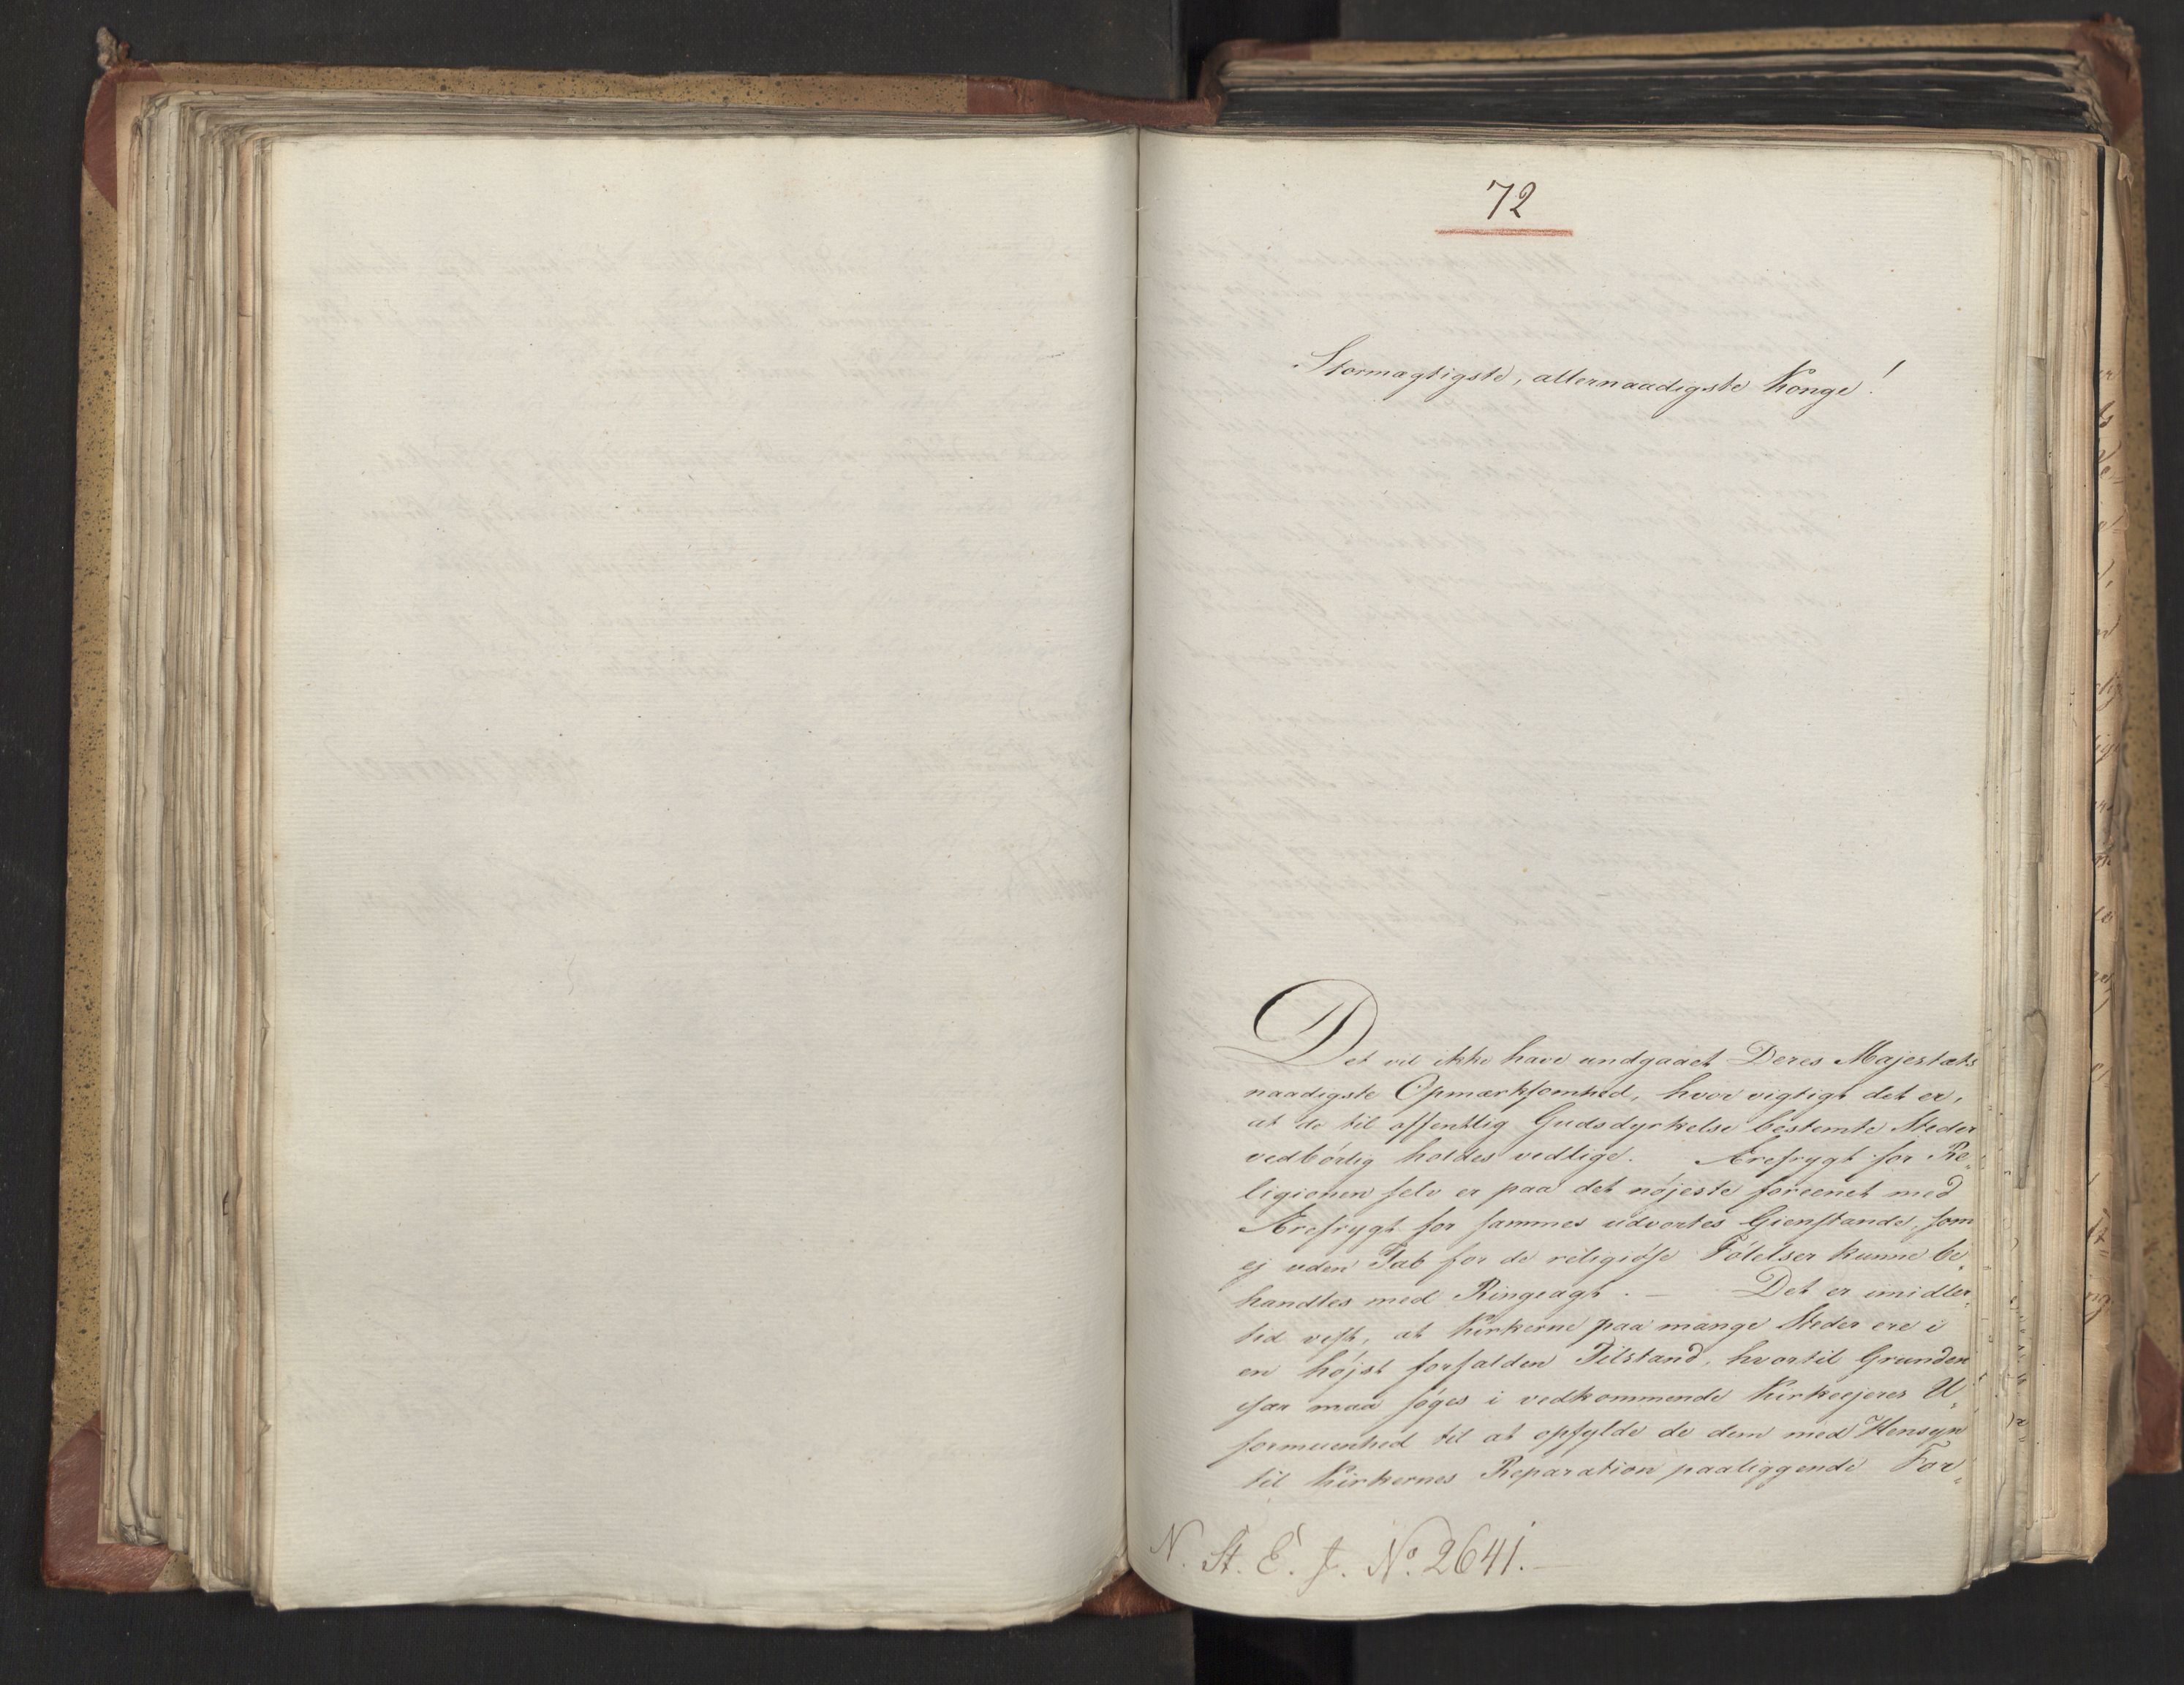 72
Stormægtigste, allernaadigste Konge!
Det vil ikke have undgaaet Deres Majestæts
naadigste Opmærksomhed, hvor vigtigt det er,
at de til offentlig Gudsdyrkelse bestemte Steder
vedbørlig holdes vedlige. Ærefrygt for Re-
ligionen selv er paa det nøjeste foreenet med
Ærefrygt for sammes udvortes Gienstande, som
ej uden Tab for de religiøse Følelser kunne be-
handles med Ringeagt. — Det er imidler-
tid vist, at Kirkerne paa mange Steder ere i
en højst forfalden Tilstand, hvortil Grunden
især maa søges i vedkommende Kirkeejeres U-
formuenhed til at opfylde de dem med Hensyn
til Kirkernes Reparation paaliggende For-
N. St. E. J. No. 2641. —